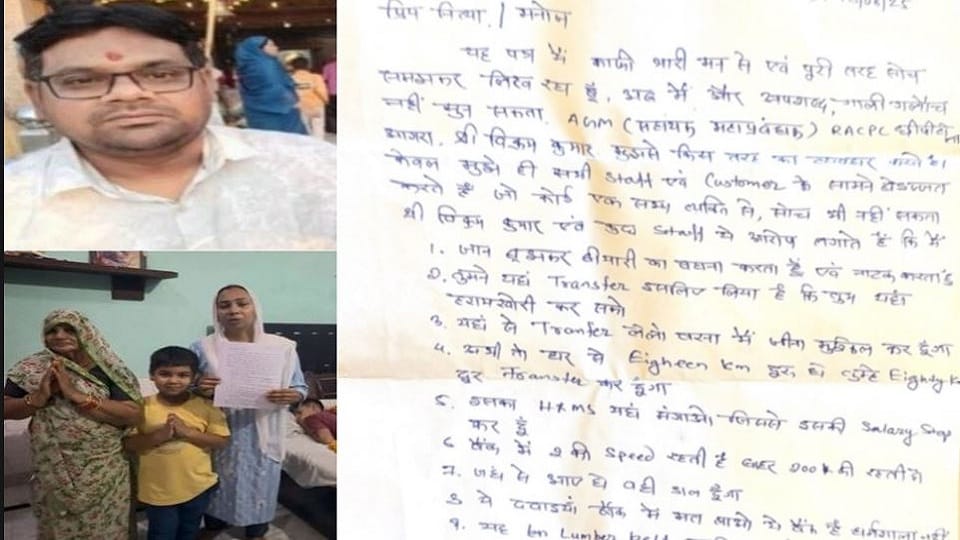 /08/25
प्रिय नित्या / मनोज
यह पत्र मैं काफी भारी मन से एवं पूरी तरह सोच
समझकर लिख रहा हूँ, अब मैं और अपशब्द, गाली गलौच
नहीं सुन सकता. AGM (सहायक महाप्रबंधक) RACPC
आगरा. श्री विक्रम कुमार मुझसे किस तरह का व्यवहार करते हैं।
केवल मुझे ही सभी Staff एवं Customer के सामने बेइज्जत
करते हैं जो कोई एक सभ्य व्यक्ति से, सोच भी नहीं सकता
श्री विक्रम कुमार एवं कुछ Staff ये आरोप लगाते हैं कि मैं
1. जान बूझकर बीमारी का बहाना करता है एवं नाटक करता है
2. तुमने यहां Transfer इसलिए लिया है कि तुम यहां
हरामखोरी कर सको
3. यहां से Tranfer लेलो वरना मैं जीना मुश्किल कर दूंगा
4. अभी तो घर से Eigheen km दूर हो तुम्हे Eighty K
दूर Transfer कर दूंगा
5. इसका HRMS यहां मंगाओ जिससे इसकी Salary Stop
कर दूँ
6 बैंक में 2 की Speed रहती है की रहती है
7. जहां से आए हो वहीं डाल दूँगा
8 ये दवाइयां बैंक में मत लाओ ये बैंक है धर्मशाला नहीं
9. यह Lumber Belt